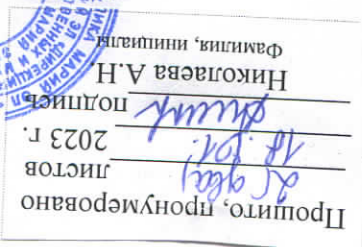 Прошито, пронумеровано
2(два) листов
18.01. 2023 г
подпись
Николаева А.Н.
Фамилия, инициалы
МАРИЙ ЭЛ